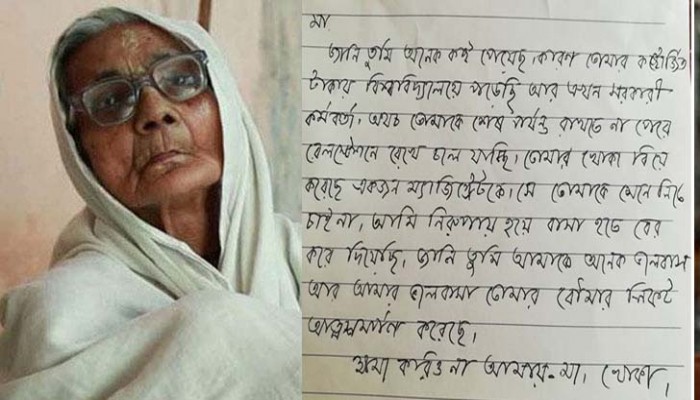 মা,
জানি তুমি অনেক কষ্ট পেয়েছ, কারণ তোমার কষ্টার্জিত
টাকায় বিশ্ববিদ্যালয়ে পড়েছি আর এখন সরকারী
কর্মকর্তা, অথচ তোমাকে শেষ পর্যন্ত রাখতে না পেরে
রেলস্টেশনে রেখে চলে যাচ্ছি। তোমার খোকা বিয়ে
করেছে একজন ম্যাজিস্ট্রেটকে। সে তোমাকে মেনে নিতে
চাইনা, আমি নিরুপায় হয়ে বাসা হতে বের
করে দিয়েছি, জানি তুমি আমাকে অনেক ভালবাস
আর আমার ভালবাসা তোমার বৌমার নিকট
আত্মসমর্পণ করেছে।
ক্ষমা করিও না আমায়-মা। খোকা।